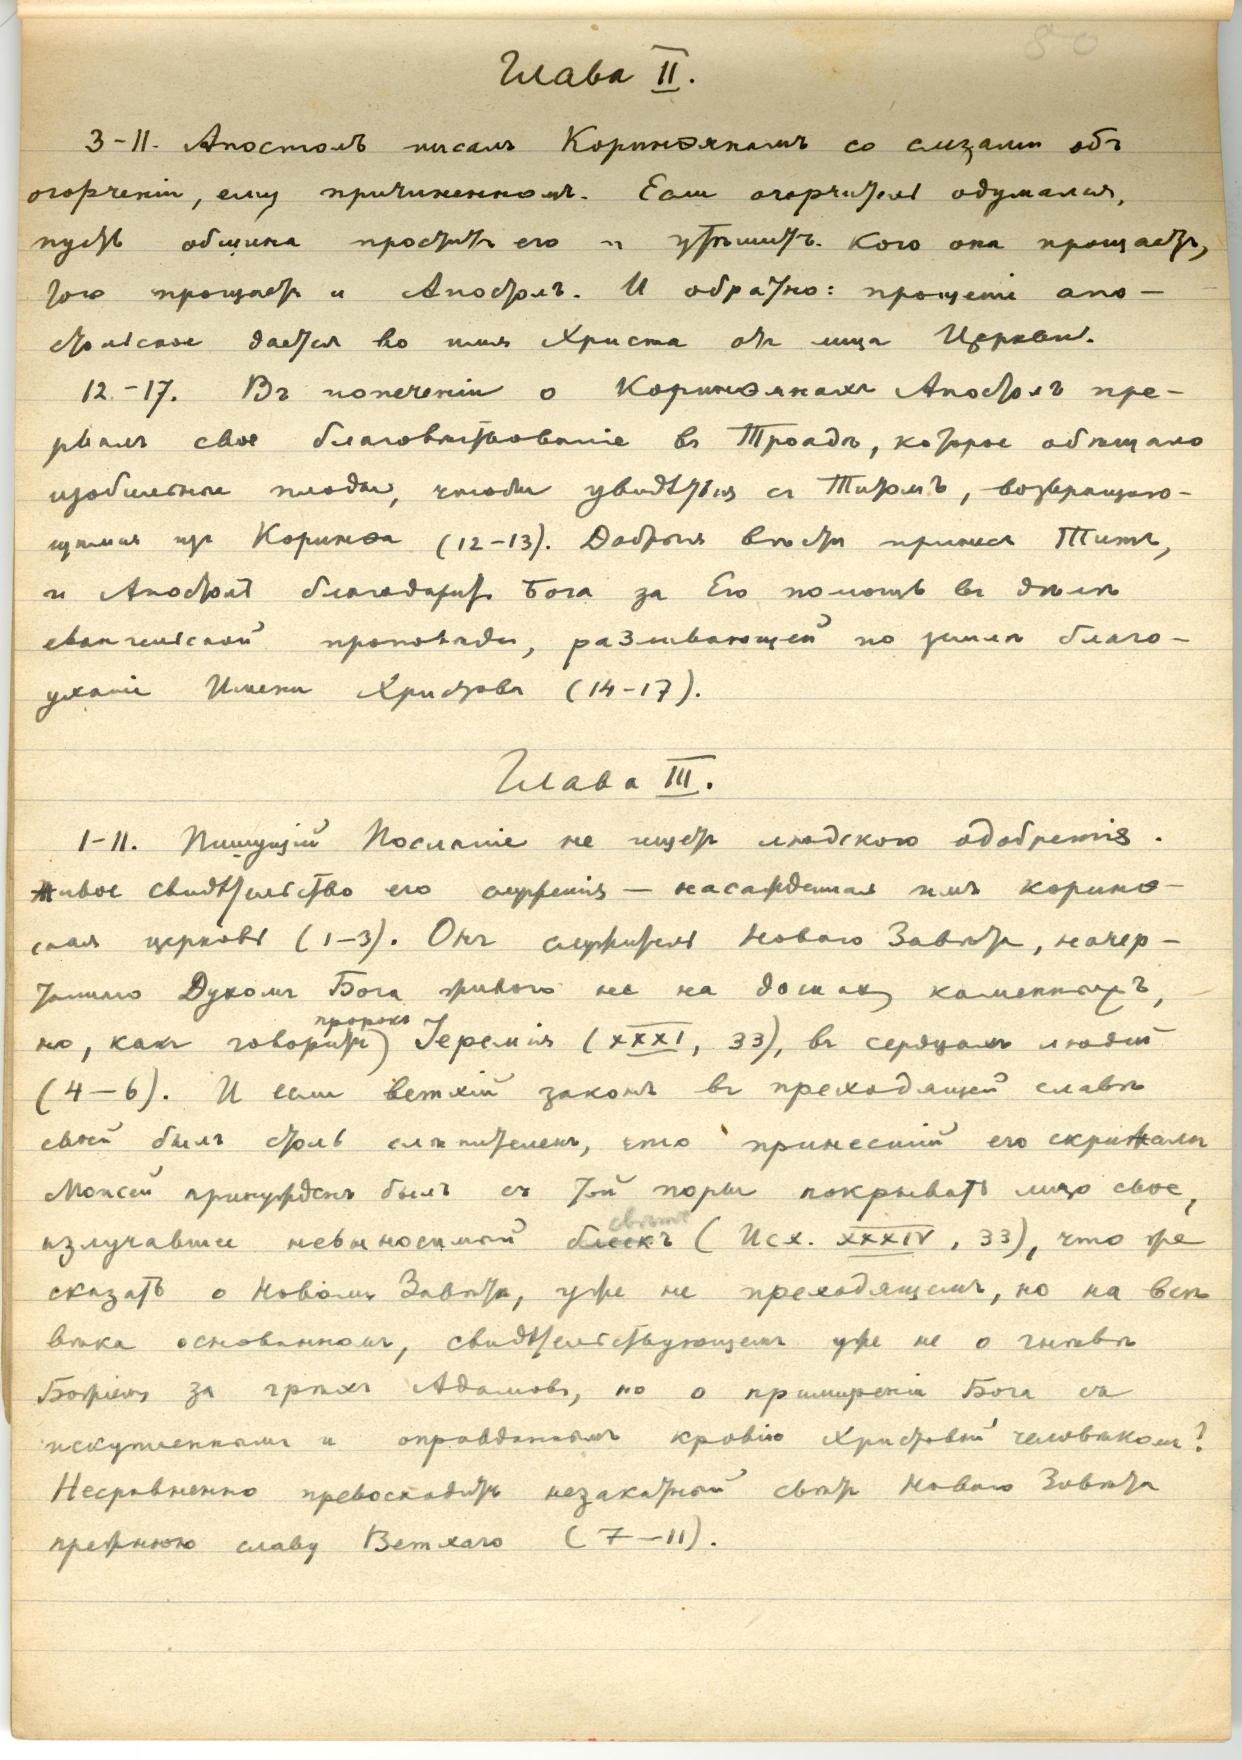 80
Глава II.
3-11. Апостолъ писалъ Коринѳянамъ со слезами объ
огорченіи, ему причиненномъ. Если огорчитель одумался,
пусть община проститъ его и утѣшитъ. Кого она прощаетъ,
того прощаетъ и Апостолъ. И обратно: прощеніе апо-
стольское дается во имя Христа отъ лица Церкви.
12-17. Въ попеченіи о Коринѳянахъ Апостолъ пре-
рвалъ свое благовѣствованіе въ Троадѣ, которое обѣщало
изобильные плоды, чтобы увидѣться съ Титомъ, возвращаю-
щимся изъ Коринѳа (12-13). Добрыя вѣсти принесъ Титъ,
и Апостолъ благодаритъ Бога за Его помощь въ дѣлѣ
евангельской проповѣди, разливающей по землѣ благо-
уханіе Имени Христова (14-17).
Глава III.
1-11. Пишущій Посланіе не ищетъ людского одобренія.
Живое свидѣтельство его служенія — насажденная имъ коринѳ-
ская церковь (1-3). Онъ служитель Новаго Завѣта, начер-
таннаго Духомъ Бога живого не на доскахъ каменныхъ,
но, какъ говоритъ пророкъ Іеремія (XXXI, 33), въ сердцахъ людей
(4-6). И если ветхій законъ въ преходящей славѣ
своей былъ столь ослѣпителенъ, что принесшій его скрижали
Моисей принужденъ былъ съ той поры покрывать лицо свое,
излучавшее невыносимый блескъ свѣтъ (Исх. XXXIV, 33), что же
сказать о Новомъ Завѣтѣ, уже не преходящемъ, но на всѣ
вѣка основанномъ, свидѣтельствующемъ уже не о гнѣвѣ
Божіемъ за грѣхъ Адамовъ, но о примиреніи Бога съ
искупленнымъ и оправданнымъ кровію Христовой человѣкомъ?
Несравненно превосходитъ незакатный свѣтъ Новаго Завѣта
прежнюю славу Ветхаго (7-11).